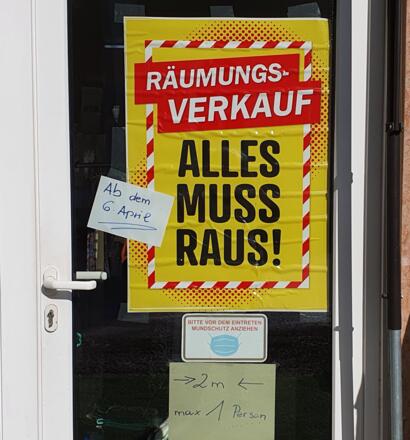 RÄUMUNGS-
VERKAUF
ALLES
MUSS
RAUS!
Ab dem
6. April
BITTE VOR DEM EINTRETEN
MUNDSCHUTZ ANZIEHEN
→ 2 m ←
max 1 Person